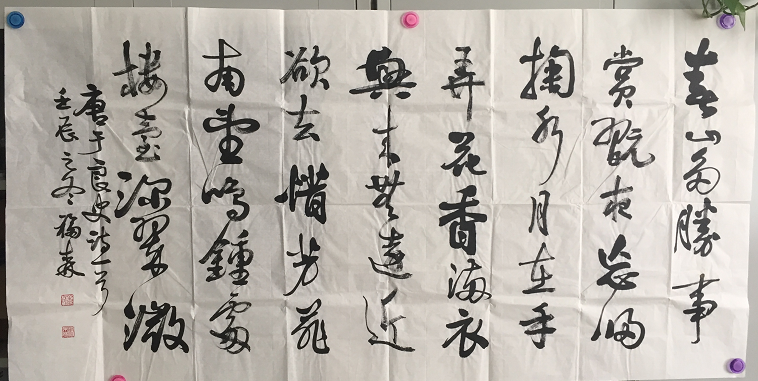 春山多勝事
賞翫夜忘歸
掬水月在手
弄花香滿衣
興来無遠近
欲去惜芳菲
南望鳴鐘處
樓臺深翠微
唐于良史詩一首
壬辰之冬福森